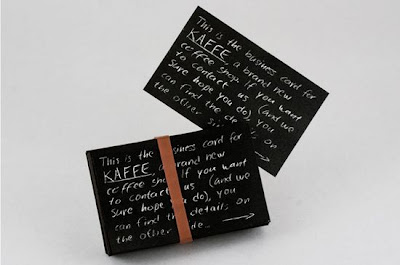 This is the business card for
KAFFE, a brand new
coffee shop. If you want
to contact us (and we
sure hope you do), you
can find the de on
the other →
This is the business card for
KAFFE, a brand new
coffee shop. If you want
to contact us (and we
sure hope you do), you
can find the details on
the other de. →